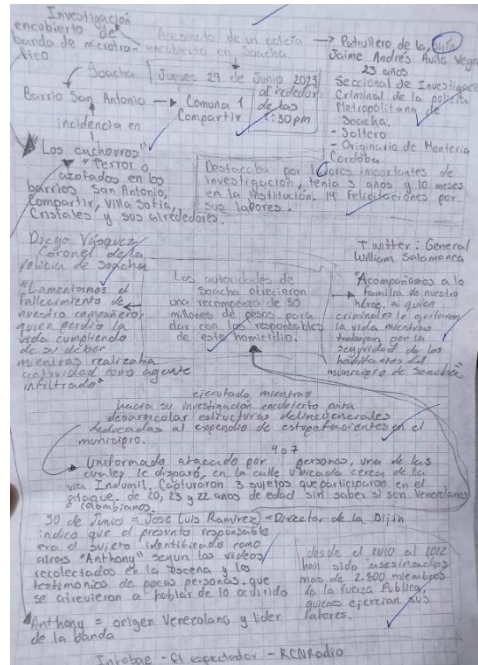 Investigación
encubierto de
banda de microtra-
fico
Asesinato de un policía
encubierto en Soacha
→ Patrullero de la
Jaime Andrés Avila Vega
23 años
Seccional de Investigación
Criminal de la policia
Metropolitana de
Soacha.
- Soltero
- Originario de Monteria
Cordoba
Soacha
Jueves 29 de Junio 2023
alrededor
de las
1:30pm
Barrio San Antonio → Comuna 1
Compartir
incidencia en
"Los cuchorros"
"Terror o
azotados en los
barrios San Antonio,
Compartir, Villa Sofia,
Cristales y sus alrededores.
Destaccion por labores importantes de
investigación, tenia 3 años y 10 meses
en la institución. 14 Felicitaciones por
sus labores.
Diego Vásquez
Coronel de la
policia de soacha
"Lamentamos el
fallecimiento de
nuestro compañero,
quien perdio la
vida cumpliendo
de su deber
mientras realizaba
actividad como agente
infiltrado"
Las autoridades de
Soacha ofrecieron
una recompensa de 50
millones de pesos para
dar con los responsables
de este homicidio.
Twitter: General
William Salamanca
"Acompañamos a la
familia de nuestro
héroe, a quien
criminales le quitaron
la vida mientras
trabajan por la
seguridad de los
habitantes del
municipio de Soacha"
ejecutado mientras
hacia su investigación encubierto para
desarticular estructuras delincuenciales
dedicadas al expendio de estupefacientes en el
municipio.
4 o 7
Uniformado atacado por personas, una de las
cuales le disparó, en la calle ubicada cerca de la
via Indumil. Capturaron 3 sujetos que participaron en el
ataque, de 20, 23 y 22 años de edad sin saber si son Venezolanos
o colombianos.
30 de Junio = José Luis Ramírez = Director de la Dijin
indico que el presunto responsable
era el sujeto identificado como
alias "Anthony" segun los videos
recolectados en la escena y los
testimonios de pocas personas que
se atrevieron a hablar de lo ocurrido
"Anthony = origen Venezolano y lider
de la banda
desde el 2010 al 2022
han sido asesinados
mas de 2.800 miembros
de la fuerza Publica,
quienes ejercian sus
labores.
Infobae - El espectador - RCNRadio